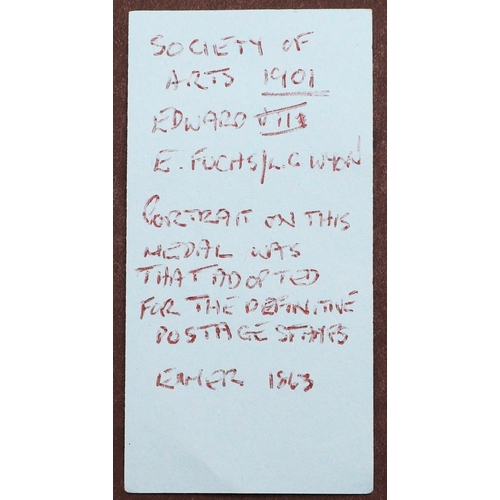 SOCIETY OF
ARTS 1901
EDWARD VII
E. FUCHS/L.C WYON
PORTRAIT ON THIS
MEDAL WAS
THAT ADOPTED
FOR THE DEFINITIVE
POSTAGE STAMPS
EIMER 1863